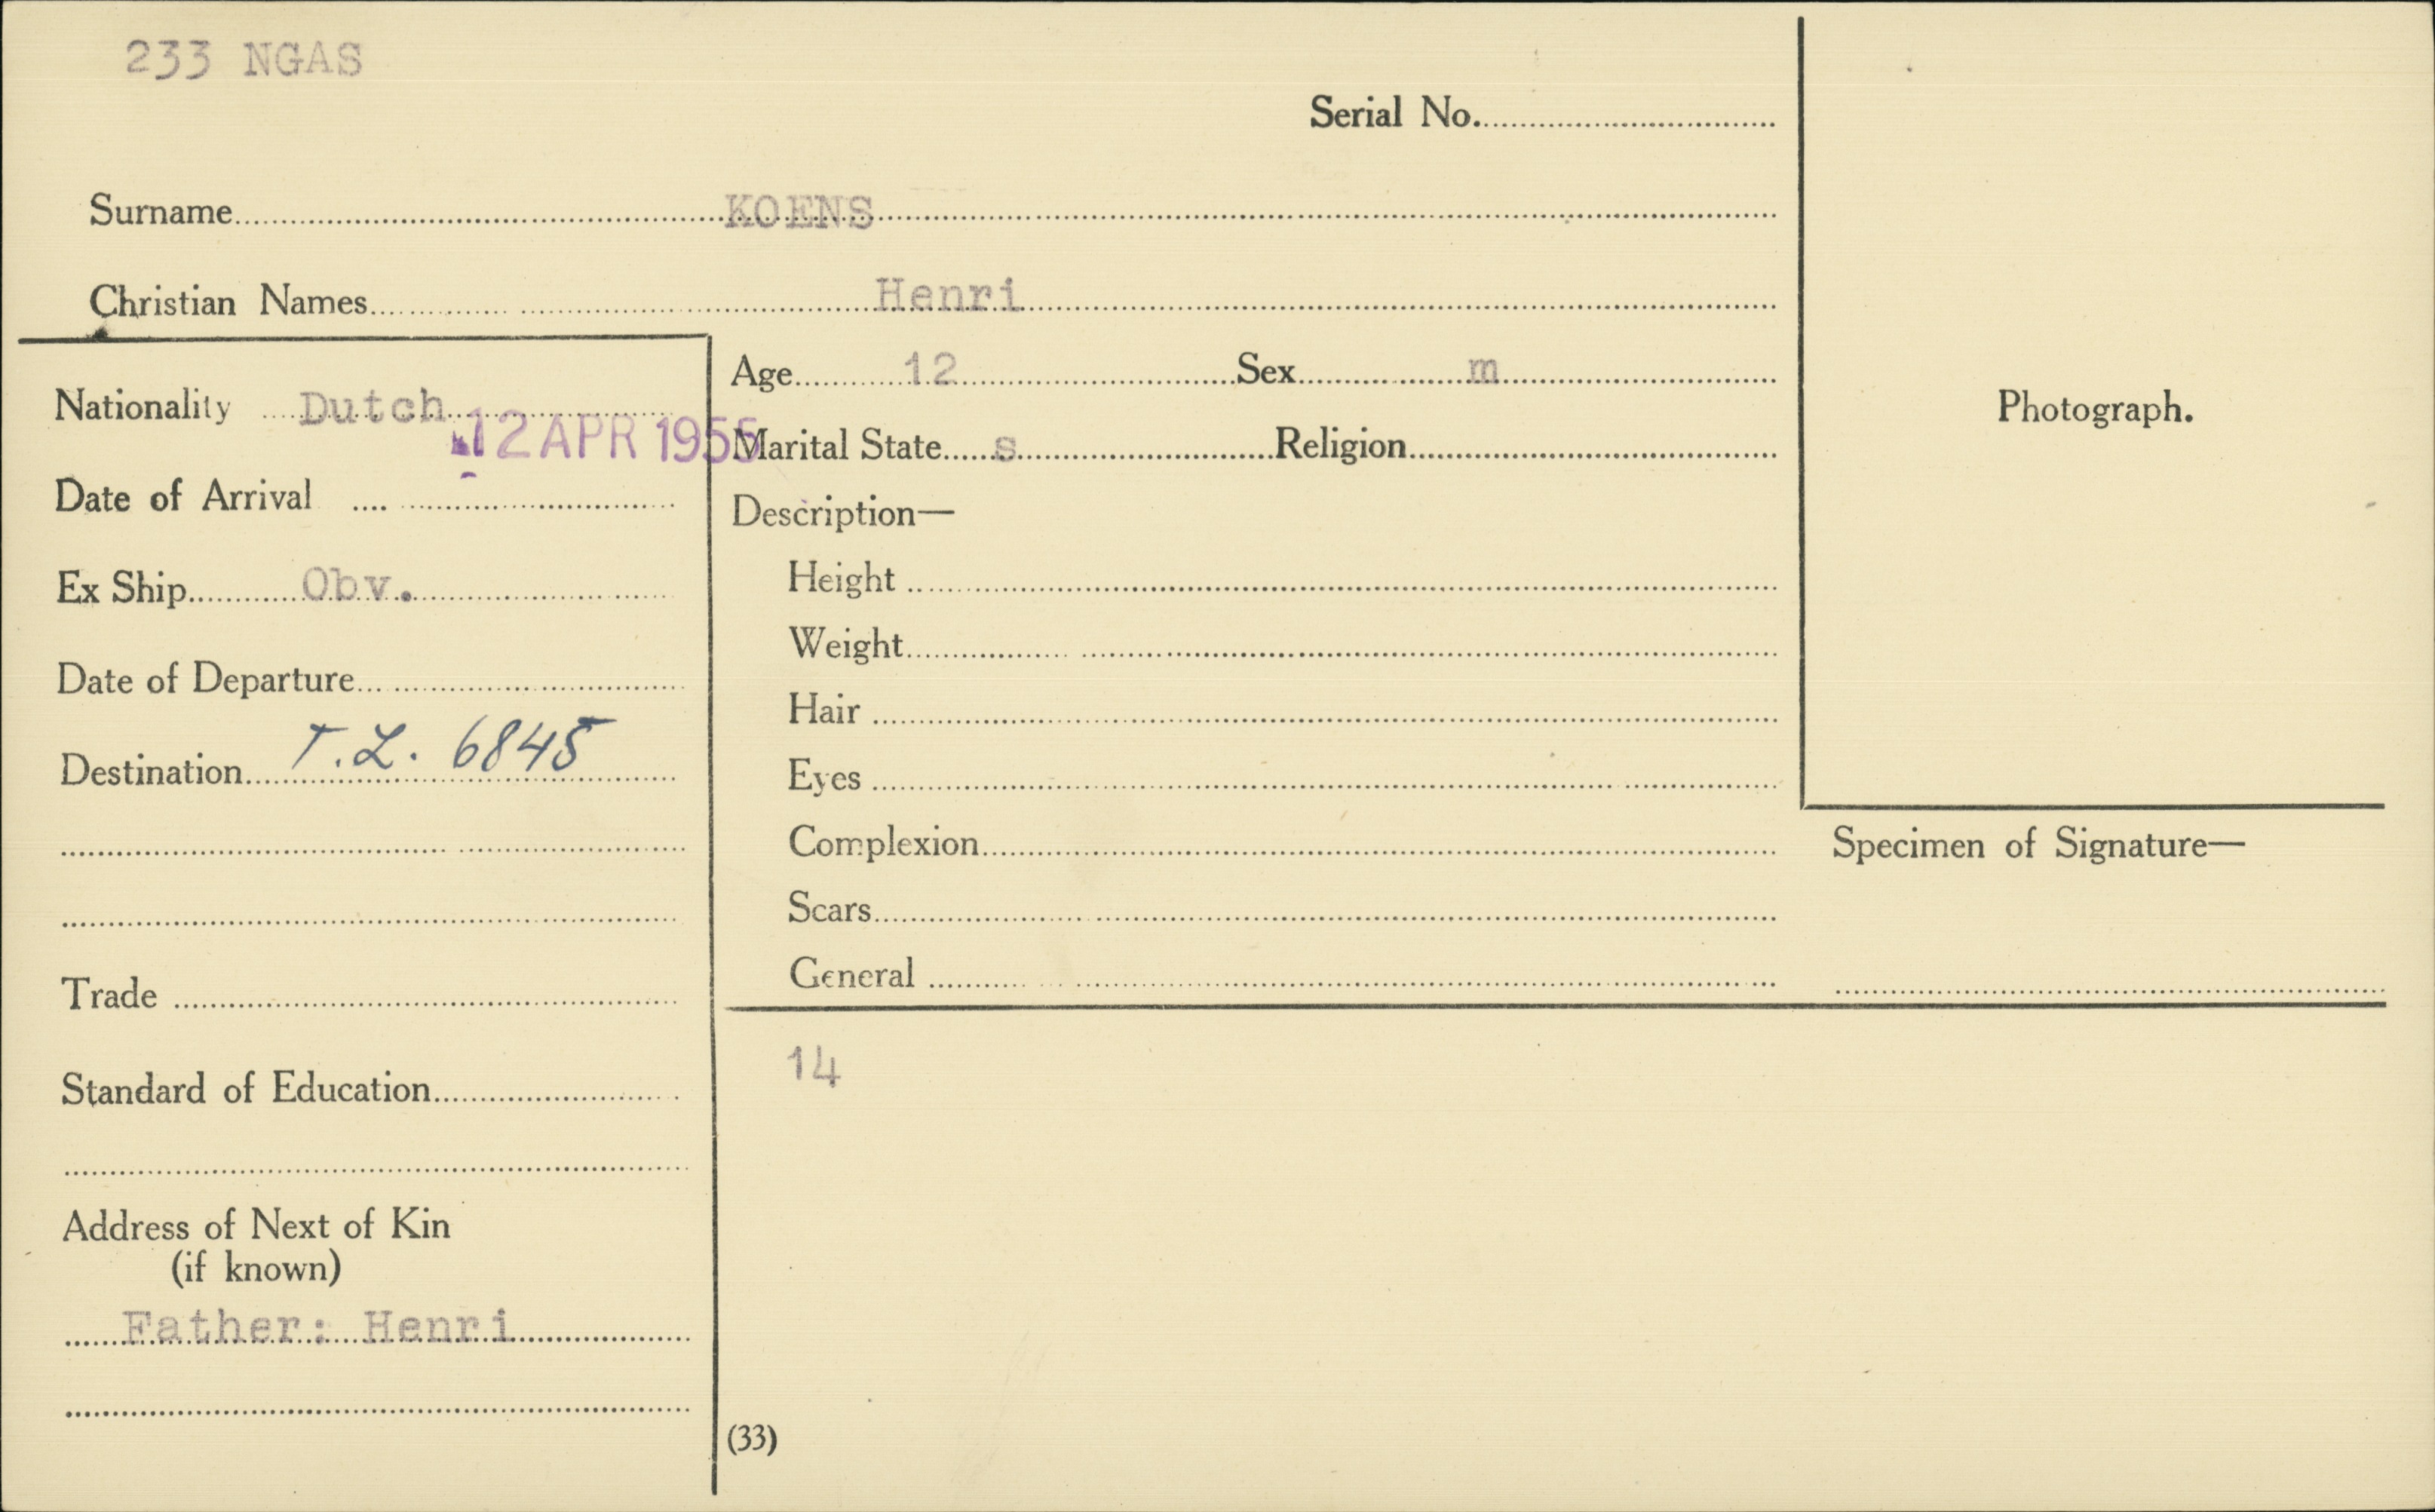 233 NGAS
Serial No.
Surname KOENS
Christian Names Henri
Nationality Dutch
12 APR 1955
Date of Arrival
Ex Ship Obv.
Date of Departure
Destination T.L. 6845
Trade
Standard of Education
Address of Next of Kin
(if known)
Father: Henri
Age 12 Sex m
Marital State s Religion
Description—
Height
Weight
Hair
Eyes
Complexion
Scars
General
14
(33)
Photograph.
Specimen of Signature—